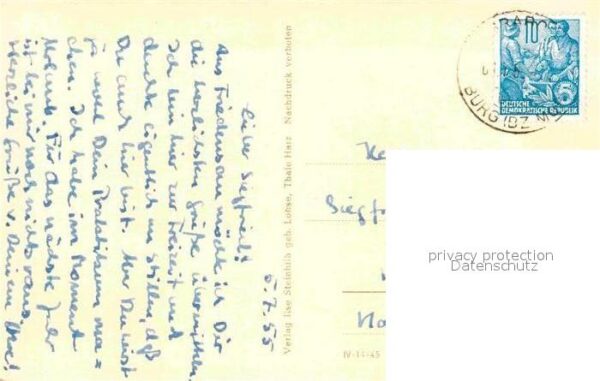 5.7.55
Lieber Siegfried!
Aus Friedensau möchte ich Dir
die herzlichsten Grüße übermitteln.
Ich bin hier zur Freizeit und
dachte eigentlich im Stillen, daß
Du auch hier bist. Aber Du wirst
ja wohl Dein Praktikum ma=
chen. Ich habe im Moment
Urlaub. Für das nächste Jahr
ist bei mir noch nichts raus.
Herzliche Grüße v. Deinem
Verlag Ilse Steinhilb geb. Lohse, Thale Harz Nachdruck verboten
IV-14-45
10
DEUTSCHE
DEMOKRATISCHE REPUBLIK
5
BURG (BZ M
Siegf
privacy protection
Datenschutz